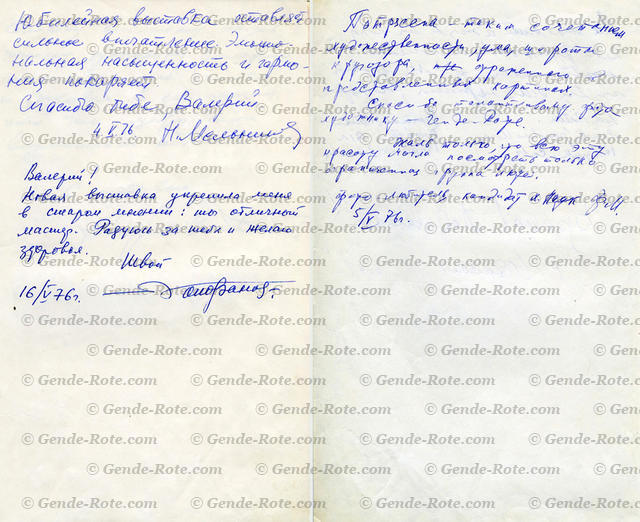 Юбилейная выставка оставляет
сильное впечатление. Эмоцио-
нальная насыщенность и гармо-
ния покоряет
Спасибо тебе, Валерий
4.V 76 Н. Мельников
Валерий!
Новая выставка укрепила меня
в старом мнении: ты отличный
мастер. Радуюсь за тебя и желаю
здоровья.
Твой
16/V 76 г.
Потрясена таким сочетанием
художественности, ума, широты
кругозора, отраженного
представленных картинах.
Спасибо талантливому
художнику — Генде-Роте.
Жаль только, что всю эту
красоту могла посмотреть только
ограниченная группа людей.
кандидат
5/V 76 г.
© Gende-Rote.com